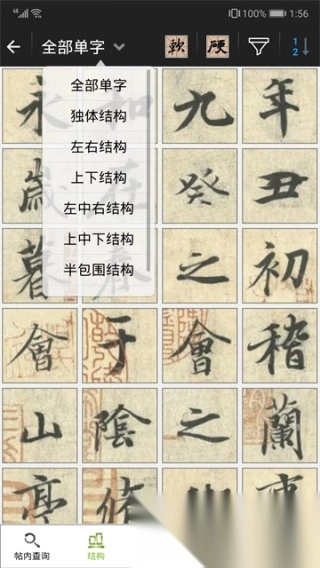 4G 100% 1:56
全部单字 軟 硬 1 2
全部单字
独体结构
左右结构
上下结构
左中右结构
上中下结构
半包围结构
永 和 九 年
歲 在 癸 丑
暮 春 之 初
會 于 會 稽
山 陰 之 蘭
亭 脩
帖内查询 结构